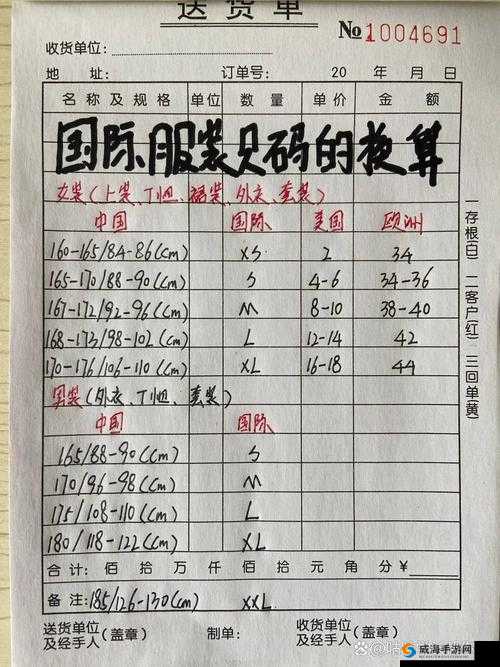 送货单
№1004691
收货单位:
地 址: 订单号: 20 年 月 日
名称及规格 单位 数量 单价 金额
国际服装尺码的换算
女装(上装、T恤、裙装、外衣、套装)
中国 国际 美国 欧洲
160-165/84-86(cm) XS 2 34
165-170/88-90(cm) S 4-6 34-36
167-172/92-96(cm) M 8-10 38-40
168-173/98-102(cm) L 12-14 42
170-176/106-110(cm) XL 16-18 44
男装(外衣、T恤、套装)
中国 国际
165/88-90(cm) S
170/96-98(cm) M
175/108-110(cm) L
180/118-122(cm) XL
合计: 佰 拾 万 仟 佰 拾 元 角 分 ¥
备注: 185/126-130(cm) XXL
送货单位及经手人(盖章) 制单: 收货单位及经手人(盖章)
一存根(白) 二客户(红) 三回单(黄)
威海手游网